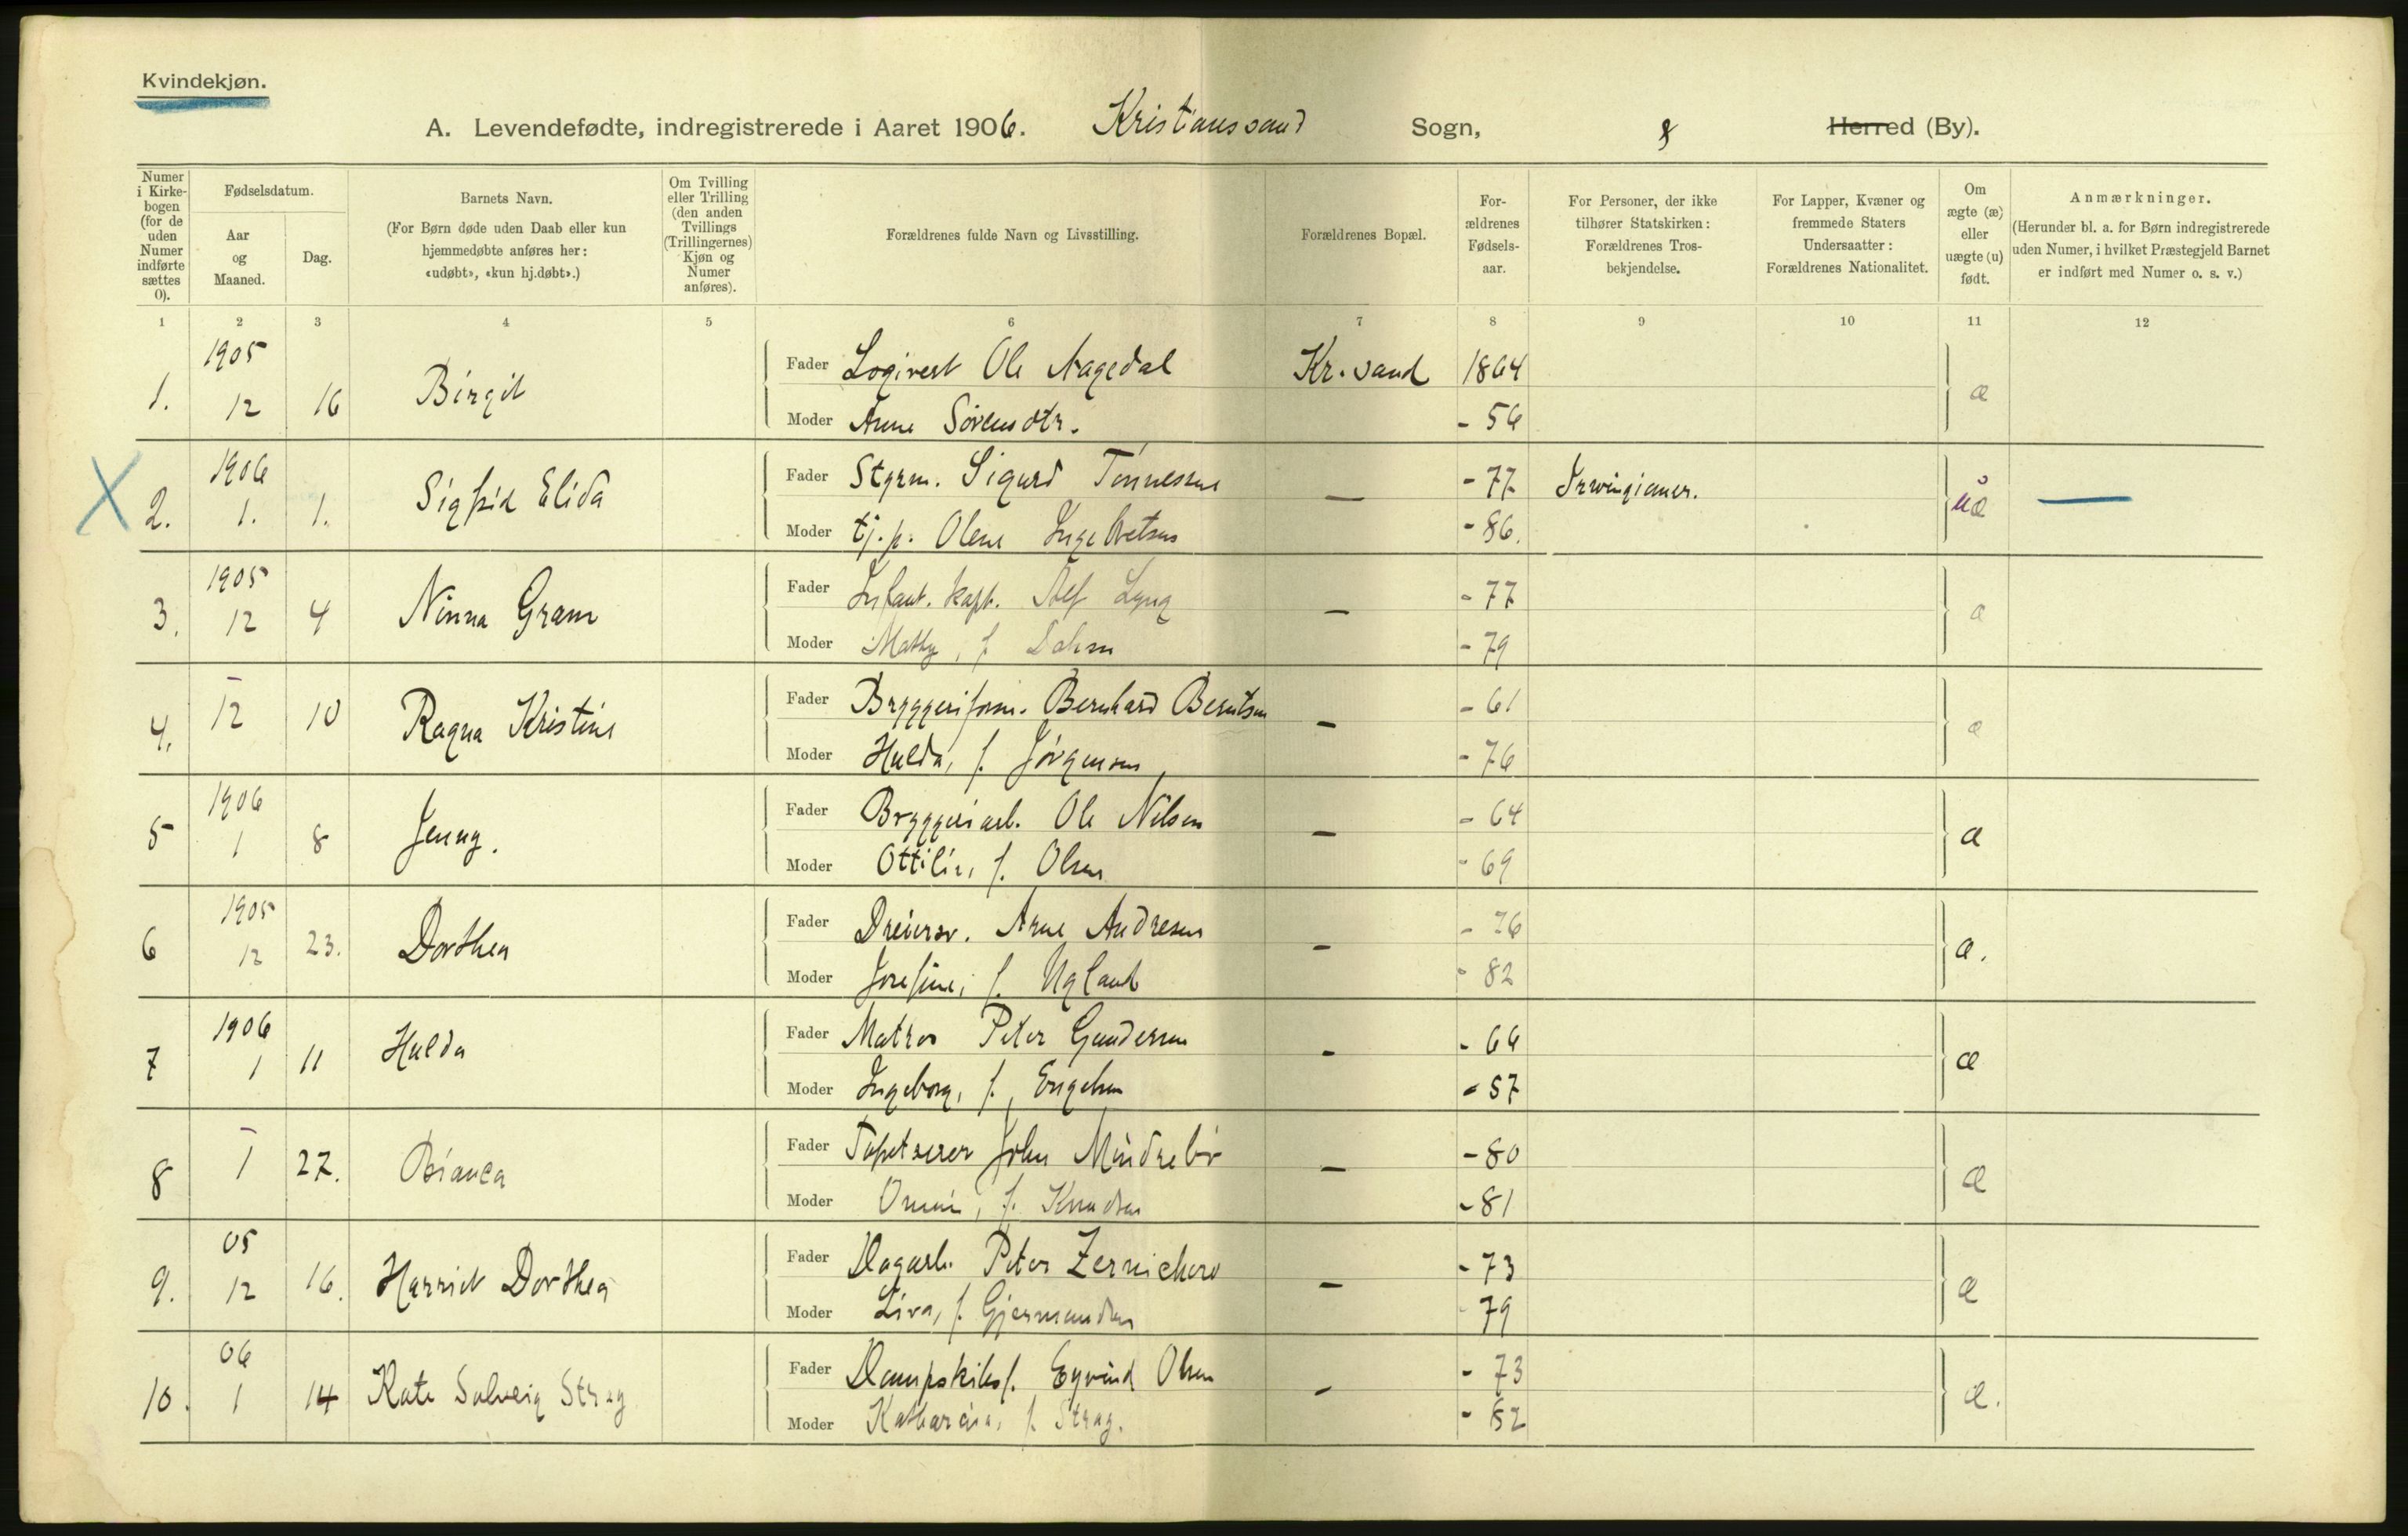 Kvindekjøn.
A. Levendefødte, indregistrerede i Aaret 1906. Kristianssand Sogn, Herred (By).
Numer i Kirkebogen (for de uden Numer indførte sættes 0).
Fødselsdatum.
Aar og Maaned.
Dag.
Barnets Navn.
(For Børn døde uden Daab eller kun hjemmedøbte anføres her: «udøbt», «kun hj.døbt».)
Om Tvilling eller Trilling (den anden Tvillings (Trillingernes) Kjøn og Numer anføres).
Forældrenes fulde Navn og Livsstilling.
Forældrenes Bopæl.
For-ældrenes Fødsels-aar.
For Personer, der ikke tilhører Statskirken: Forældrenes Tros-bekjendelse.
For Lapper, Kvæner og fremmede Staters Undersaatter: Forældrenes Nationalitet.
Om ægte (æ) eller uægte (u) født.
Anmærkninger.
(Herunder bl. a. for Børn indregistrerede uden Numer, i hvilket Præstegjeld Barnet er indført med Numer o. s. v.)
1 2 3 4 5 6 7 8 9 10 11 12
1905
1. 12 16 Birgit Fader Logivert Ole Aagedal Kr.sand 1864 æ
Moder Anne Sørensdtr. - 56
1906
2. 1. 1. Sigfrid Elida Fader Styrm. Sigurd Tønnessen — - 77 Irwingianer. u —
Moder tj.p. Olene Ingebretsen - 86.
1905
3. 12 4 Ninna Gram Fader Infant. kapt. Alf Lyng — - 77 æ
Moder f. Dahm - 79
–
4. 12 10 Ragna Kristine Fader Bryggeriform. Bernhard Berntsen — - 61 æ
Moder Hulda, f. Jørgensen - 76
1906
5 1 8 Jenny. Fader Bryggeriarb. Ole Nilsen — - 64 æ
Moder Ottilie, f. Olsen - 69
1905
6 12 23. Dorthea Fader Dreiersv. Arne Andresen — - 76 æ.
Moder Josefine, f. Ugland - 82
1906
7 1 11 Hulda Fader Matros Peter Gundersen - - 66 æ
Moder Ingeborg, f. Engelsen - 57
–
8 1 27. Bianca Fader Tapetserer John Mindrebø — - 80 æ
Moder f. Knudsen - 81
05
9. 12 16. Harriet Dorthea Fader Dagarb. Peter Zernichow — - 73 æ
Moder Liva, f. Gjermundsen - 79
06
10. 1 14 Kate Solveig Stray Fader Dampskibsf. Eyvind Olsen - - 73 æ.
Moder Katharina, f. Stray. - 82